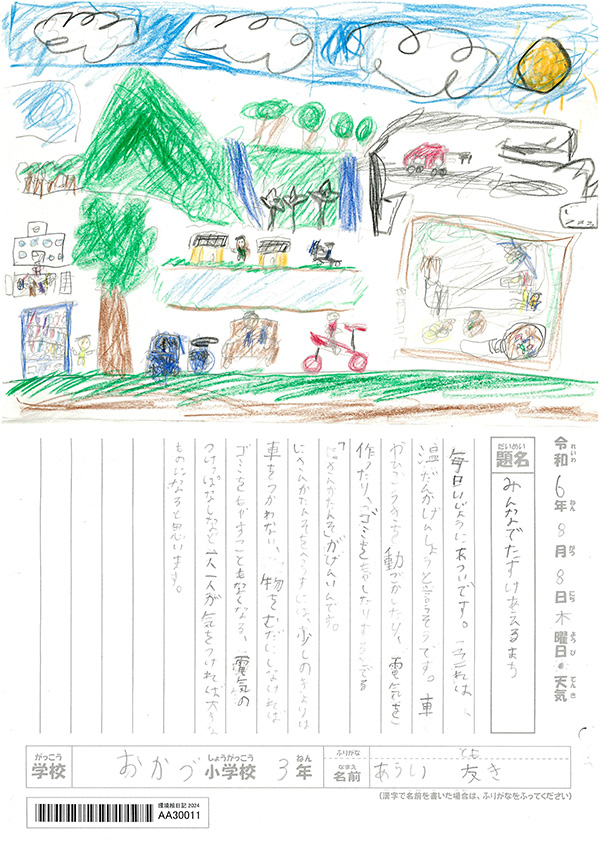 れいわ ねん がつ にち ようび てんき
令和6年8月8日木曜日●天気
だいめい
題名 みんなでたすけあえるまち
毎日いじょうにあついです。これは、
温だんかげんしょうと言うそうです。車
やひこうきを動ごかしたり、電気を
作ったり、ゴミをもやしたりするとでる
「にさんかたんそ」がげんいんです。
にさんかたんそをへらすには、少しのきょりは
車をつかわない、物をむだにしなければ
ゴミをもやすこともなくなる、電気の
つけっぱなしなど一人一人が気をつければ大きな
ものになると思います。
がっこう しょうがっこう ねん
学校 おかづ小学校 3年
ふりがな とも
なまえ
名前 あらい 友き
(漢字で名前を書いた場合は、ふりがなをふってください)
環境絵日記 2024
AA30011